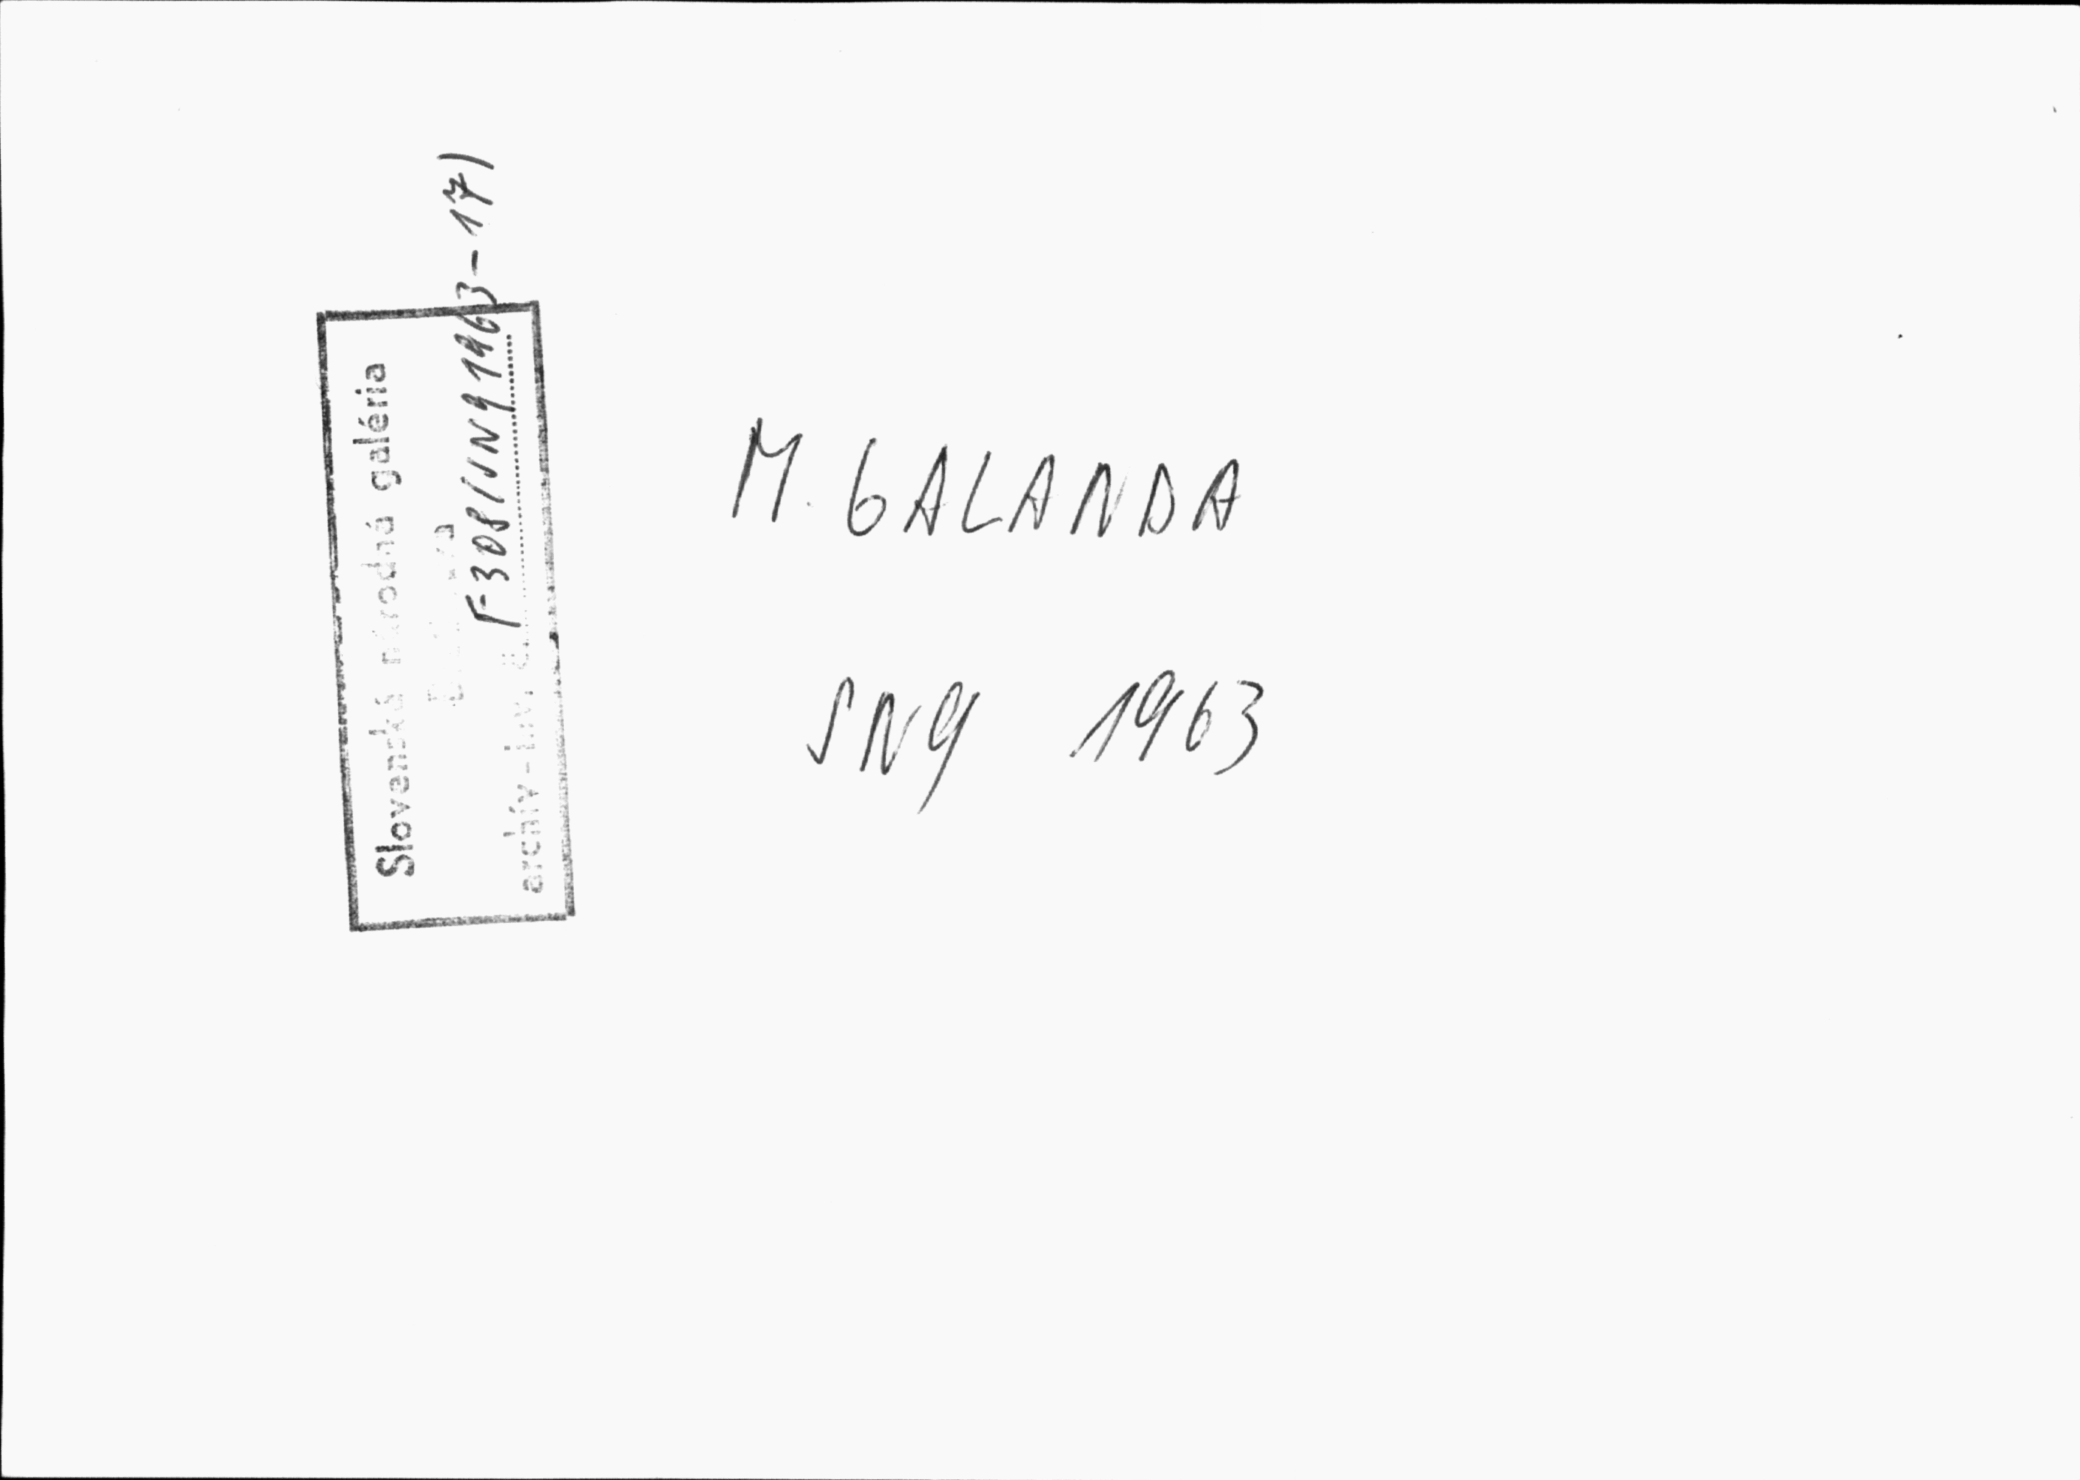 Slovenská národná galéria
archív - inv. č. F-308/SNG 1963-17)
M. GALANDA
SNG 1963